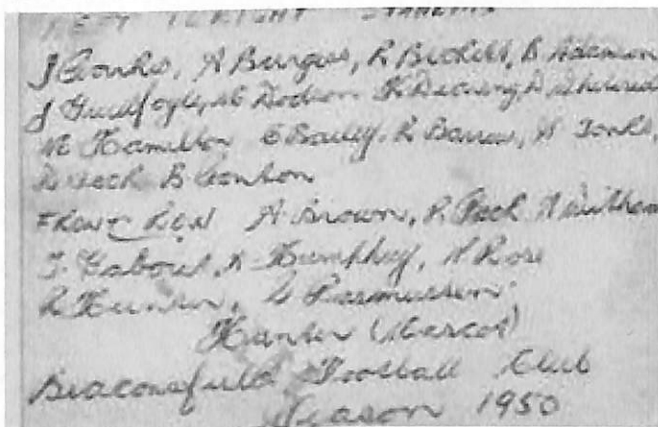 LEFT TO RIGHT STANDING
J Cronks, A Burgess, R Bickett, B Adamson
J Guilfoyle, Dodson K Dearing, D
Hamilton E Bailey. R Barrow, N Tonks,
Peck B Conlon
FRONT ROW A Brown, R Peck
J. Gabout, K Humphrey, N Rose
R Hunter, G Rasmussen
Hunter (Mascot)
Beaconsfield Football Club
Season 1950